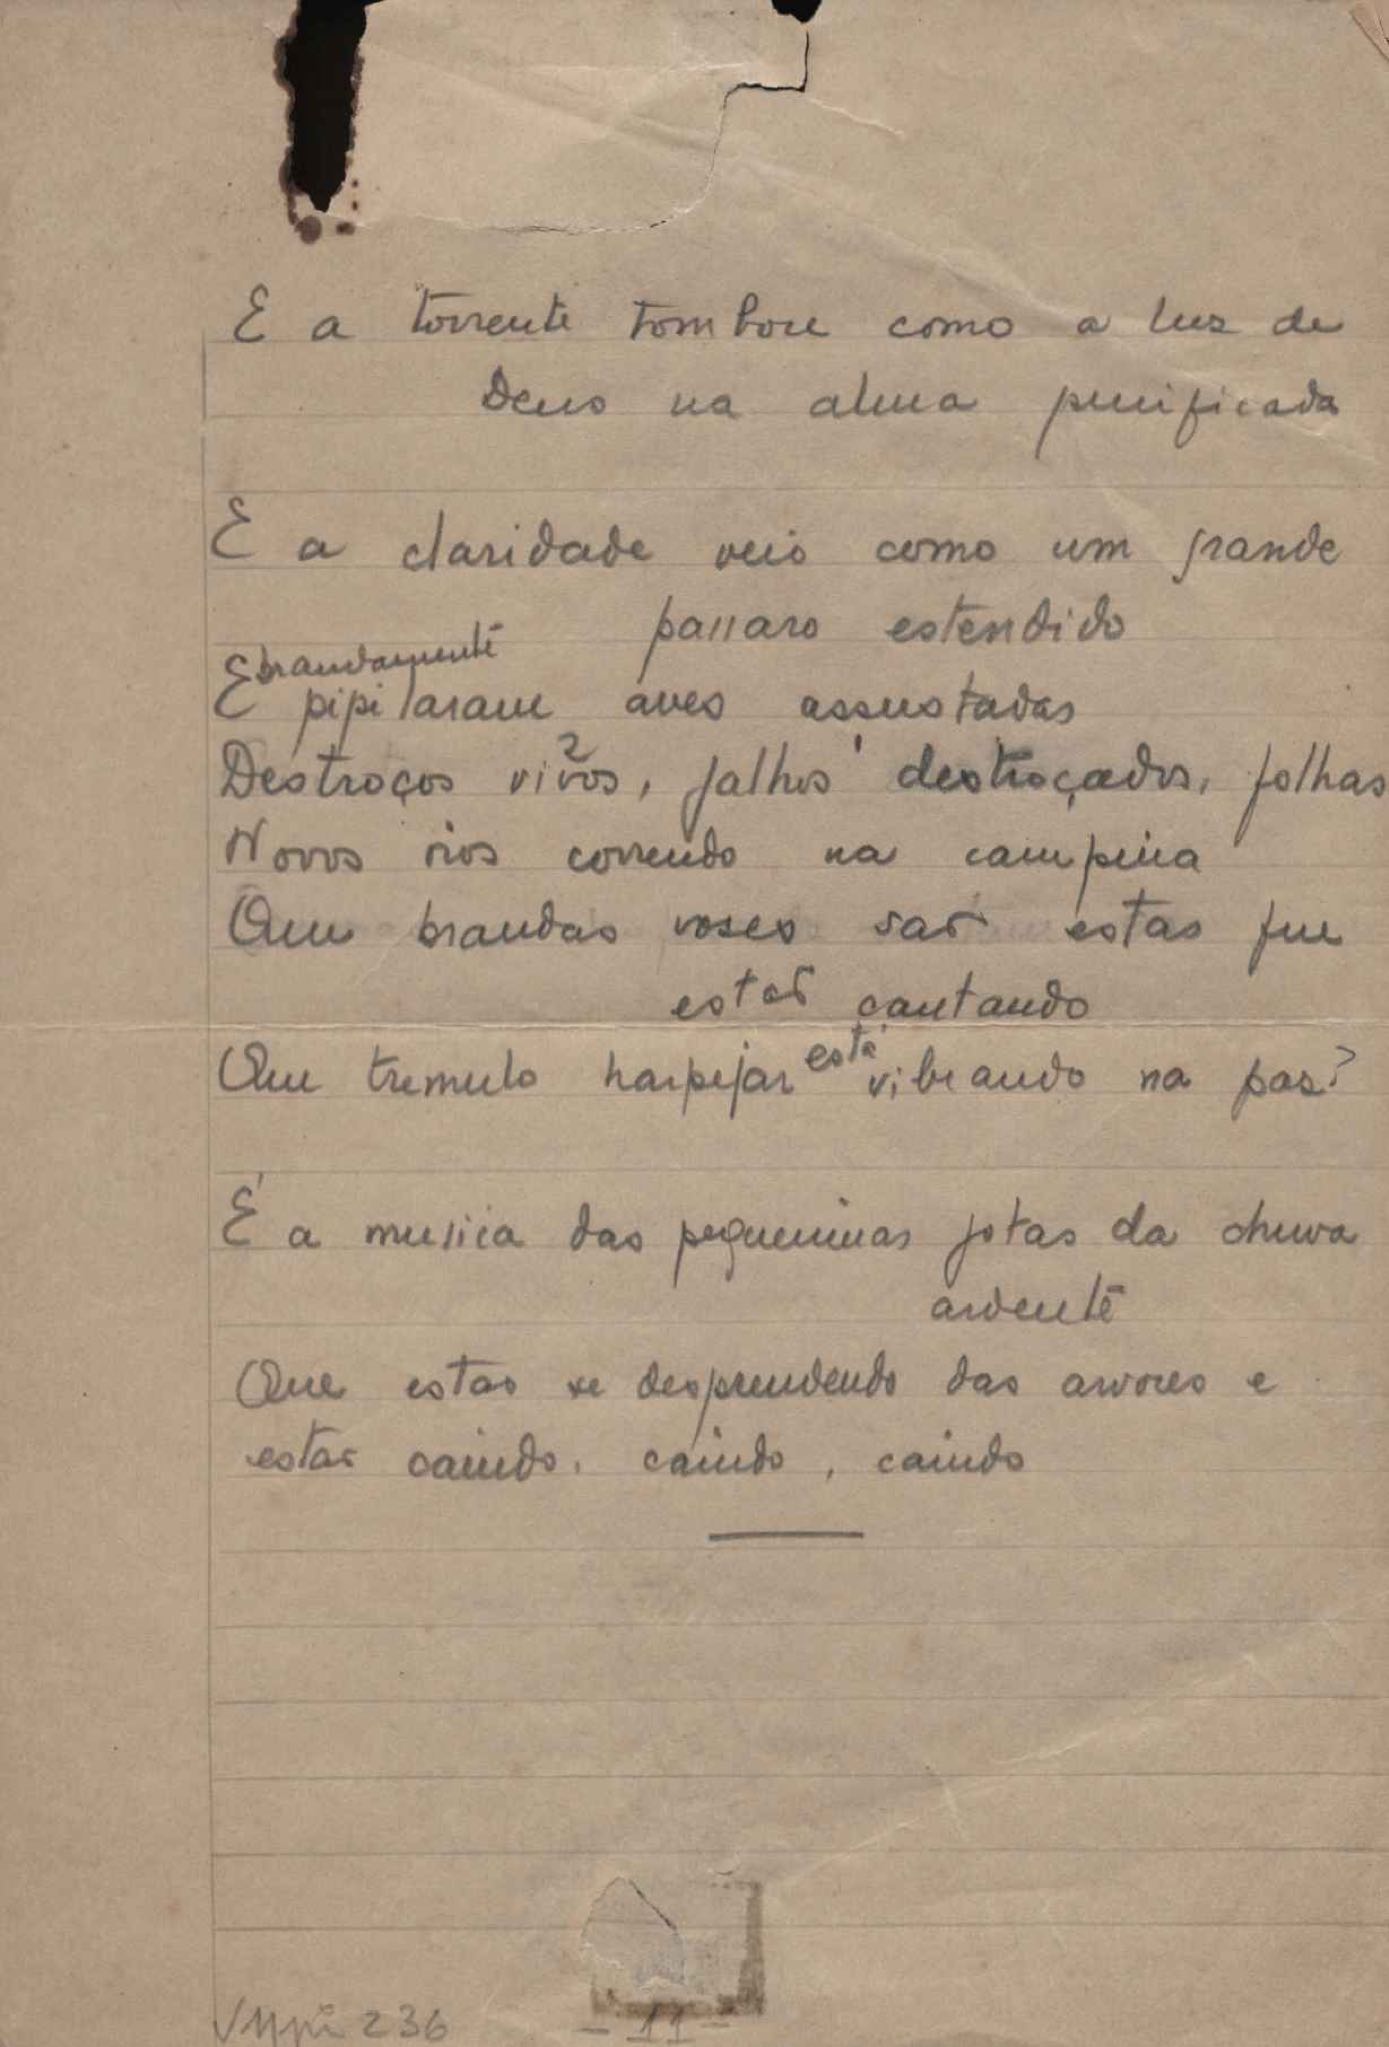 E a torrente tombou como a luz de
Deus na alma purificada
E a claridade veio como um grande
passaro estendido
brandamente
E pipilaram aves assustadas
2
Destroços vivos, galhos destroçados, folhas
Novos rios correndo na campina
Que brandas vozes são estas que
estão cantando
está
Que tremulo harpejar vibrando na paz?
É a musica das pequeninas gotas da chuva
ardente
Que estão se desprendendo das arvores e
estão caindo, caindo, caindo
236
- 11 -